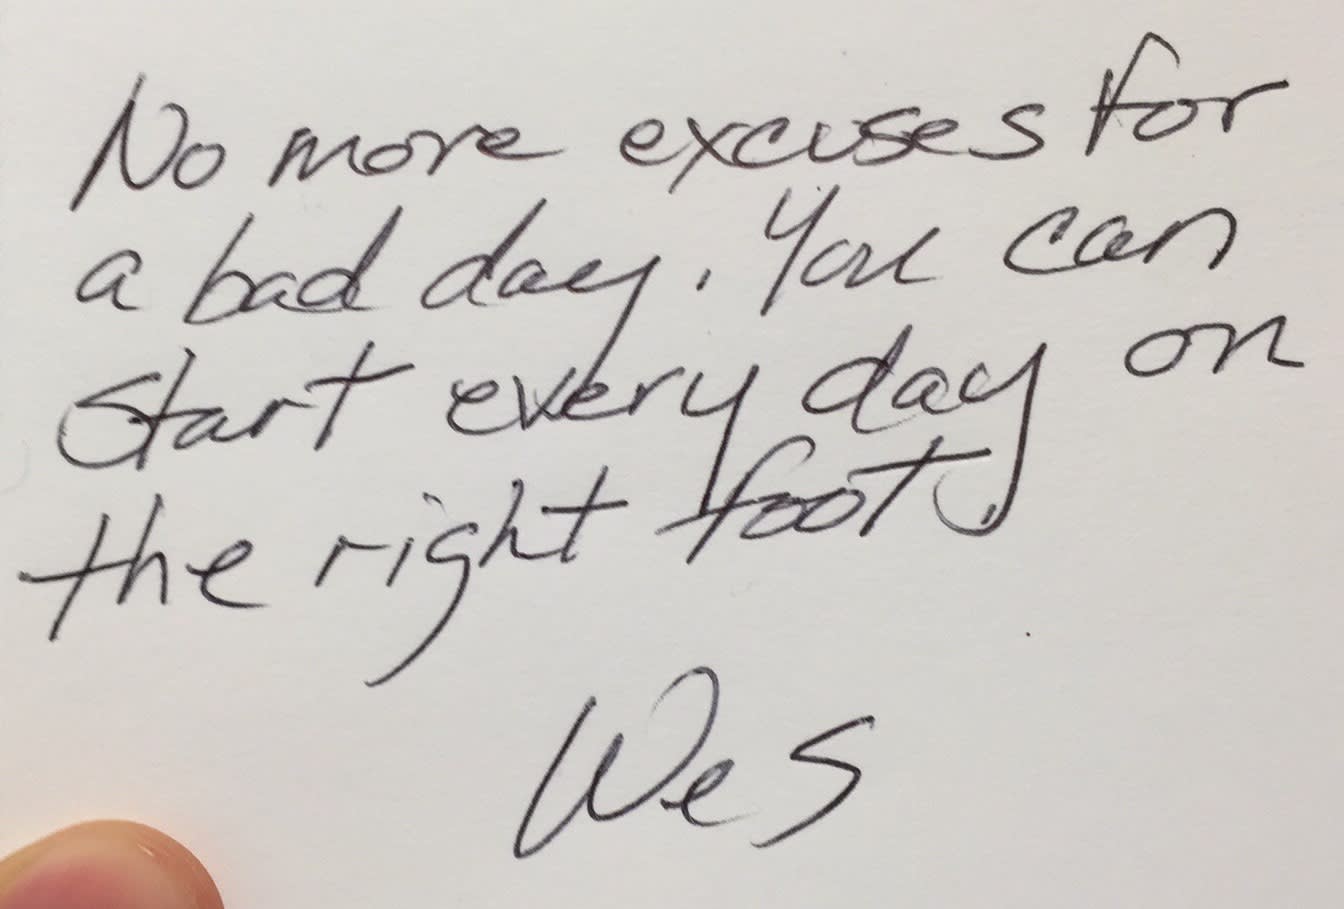 No more excuses for
a bad day. You can
start every day on
the right foot.
Wes